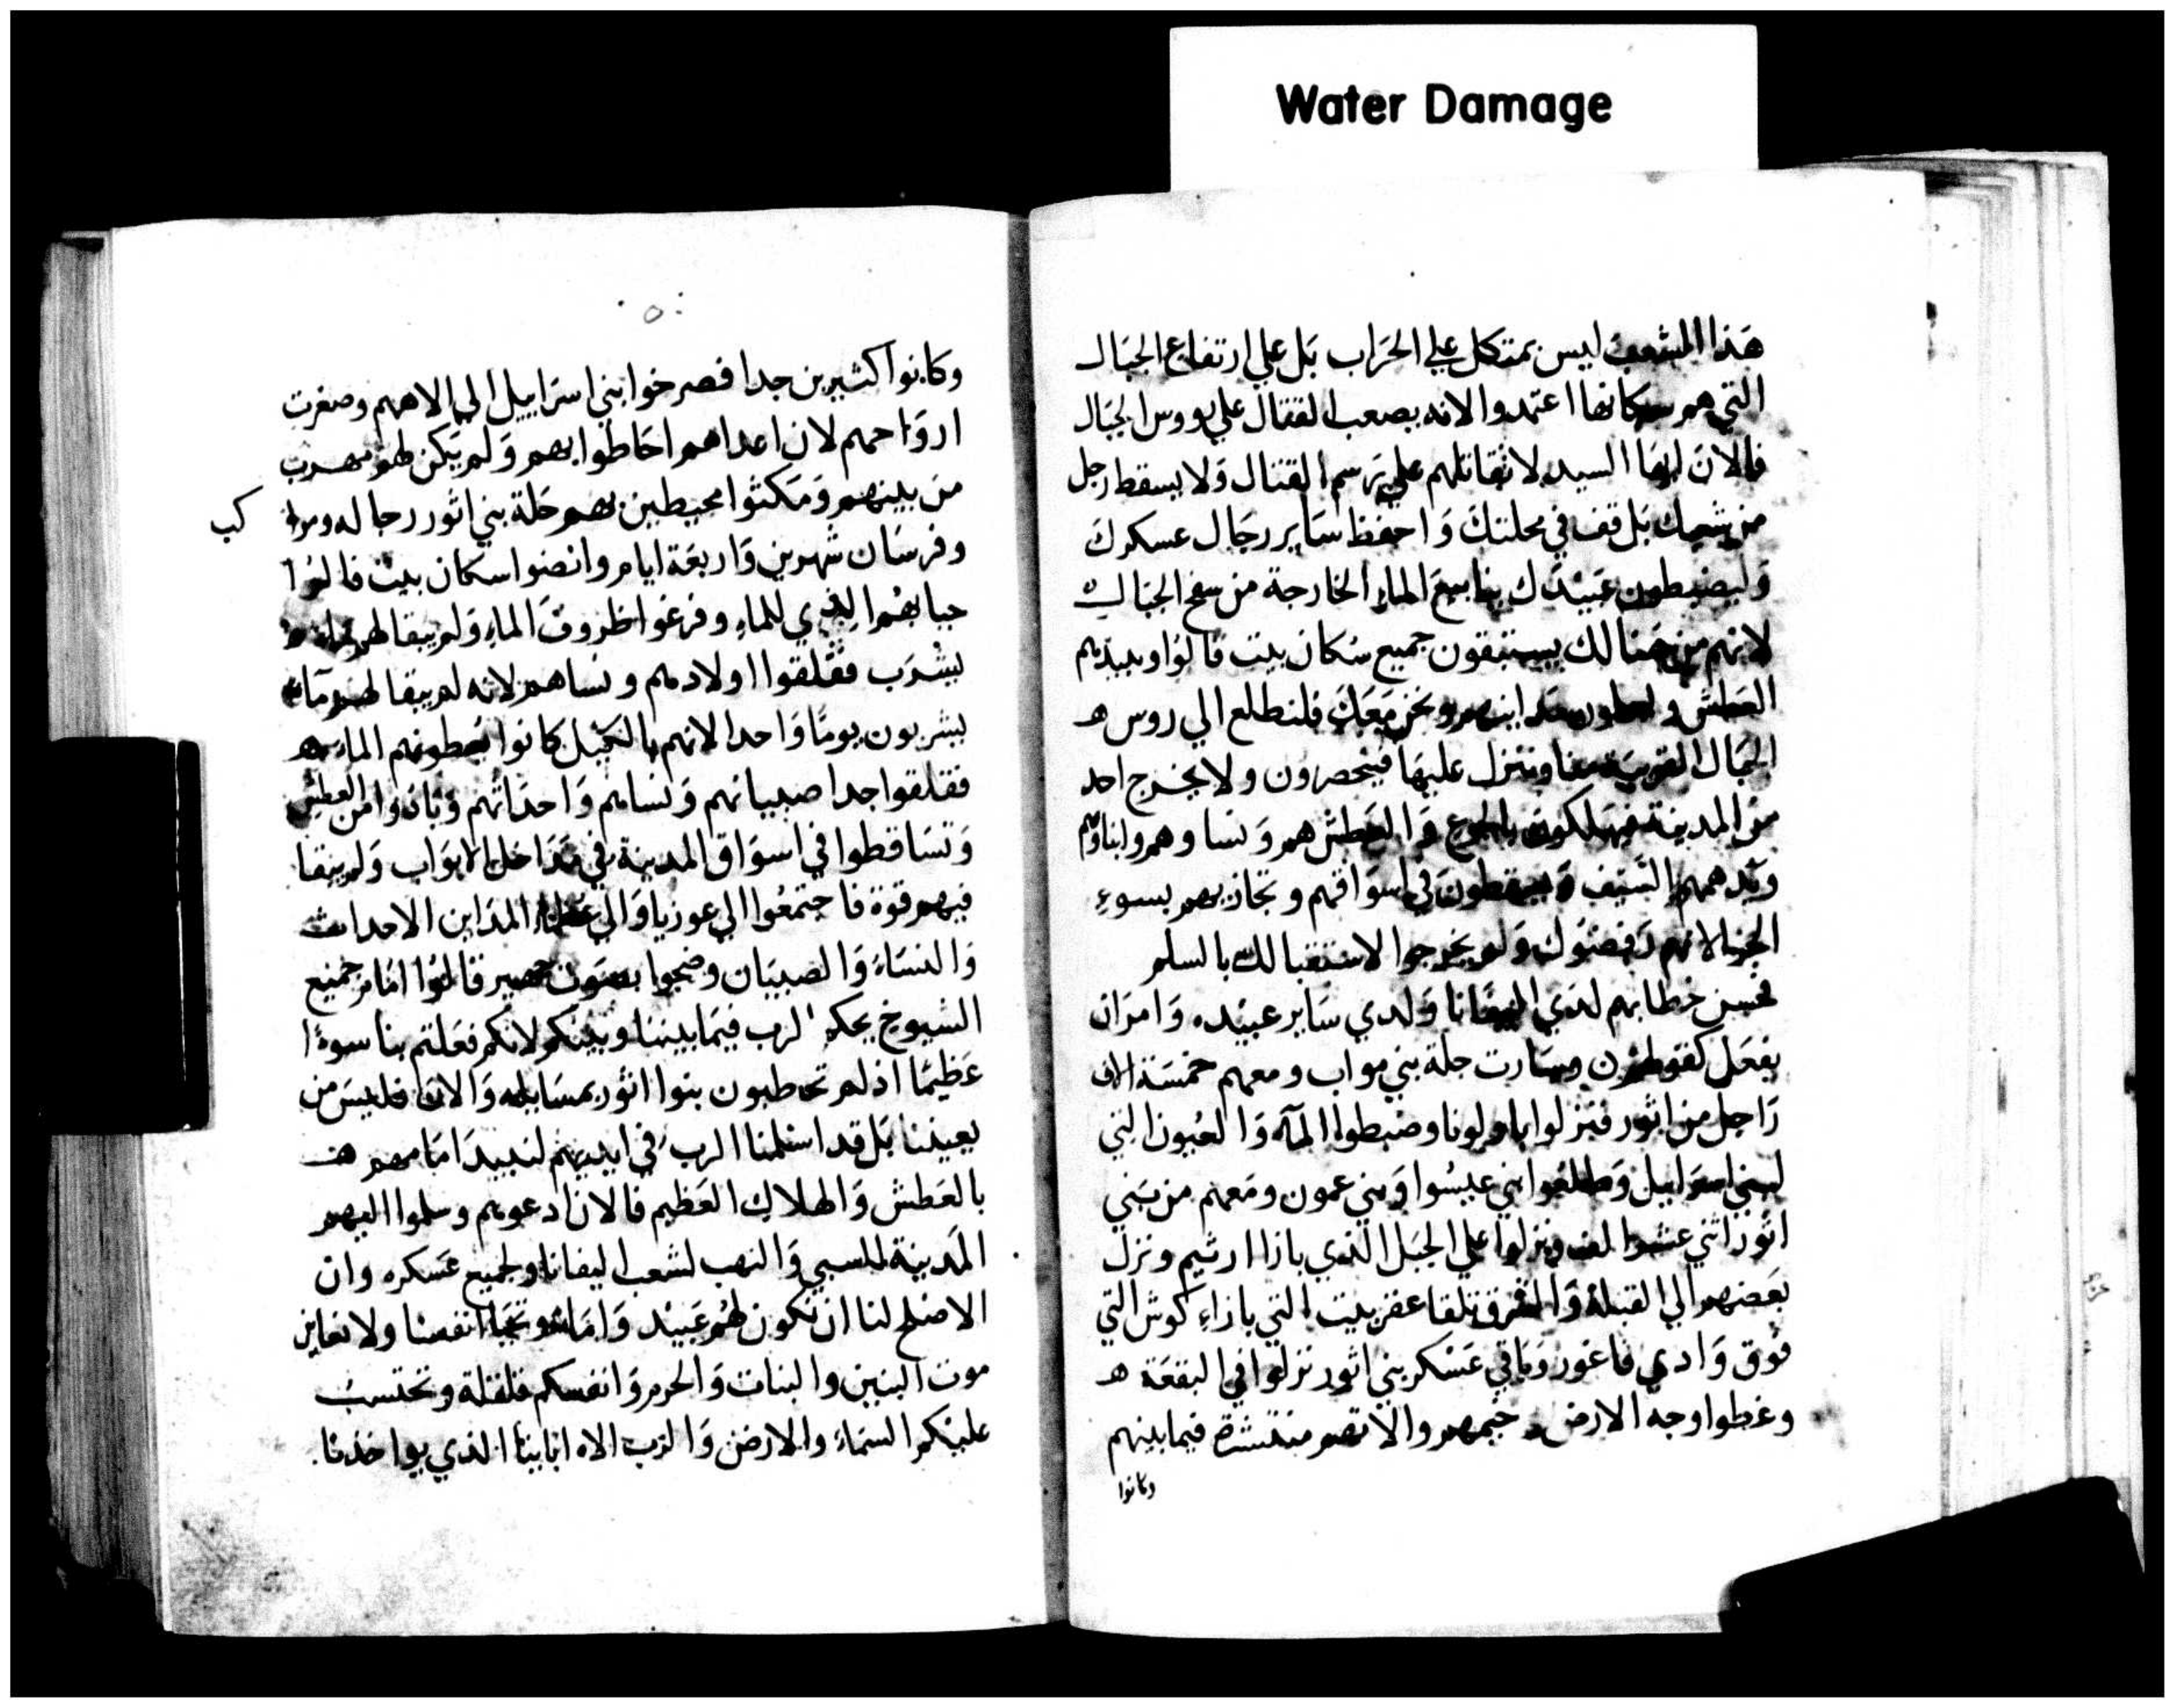 Water Damage
هذا الشعب ليس بمتكل علي الحراب بل علي ارتفاع الجبال
التي هم سكانها اعتمدوا لانه يصعب القتال علي رووس الجبال
فالان ايها السيد لا تقاتلهم علي رسم القتال ولا يسقط رجل
من شعبك بل قف في محلتك واحفظ ساير رجال عسكرك
وليضبطون عبيدك ينابيع الماء الخارجة من سفح الجبال
لانهم من هنالك يستقون جميع سكان بيت فالوا ويبيدهم
العطش ونحن معك فلنطلع الي روس
الجبال القريبة منا وننزل عليها فينحصرون ولا يخرج احد
من المدينة فيهلكون بالجوع والعطش هم ونساوهم وابناوهم
ويدهمهم السيف ويسقطون في اسواقهم وتجازيهم بسوء
الجزا لانهم رفضوك ولم يخرجوا لاستقبالك بالسلم
فحسن خطابهم لدي اليفانا ولدي ساير عبيده وامر ان
يفعل كقولهم وسارت حلة بني مواب ومعهم خمسة الاف
راجل من اثور فنزلوا وضبطوا الماء والعيون التي
لبني اسراييل وطلعوا بني عيسوا وبني عمون ومعهم من بني
اثور اثني عشر الف ونزلوا علي الجبل الذي بازا ارثيم ونزل
بعضهم الي القبلة والشرق تلقا عقربيت التي بازاء كوش التي
فوق وادي فاغور وباقي عسكر بني اثور نزلوا في البقعة
وغطوا وجه الارض وخيمهم والاتهم منتشرة فيما بينهم
وكانوا
٥
وكانوا كثيرين جدا فصرخوا بني اسراييل الي الاههم وصغرت
ارواحهم لان اعداهم احاطوا بهم ولم يكن لهم مهرب
من بينهم ومكثوا محيطين بهم حلة بني اثور رجاله
كب
وفرسان شهرين واربعة ايام وانضنوا سكان بيت فالوا
جبابهم الذي للماء وفرغوا ظروف الماء ولم يبقا لهم
ليشرب فقلقوا اولادهم ونساهم لانه لم يبقا لهم ماء
يشربون يوما واحدا لانهم بالكيل كانوا يعطونهم الماء
فقلقوا جدا صبيانهم ونساهم واحداثهم وبادوا من العطش
وتساقطوا في اسواق المدينة في مداخل الابواب ولم يبقا
فيهم قوة فاجتمعوا الي عوزيا والي عظماء المداين الاحداث
والنساء والصبيان وضجوا بصوت جهير قالوا امام جميع
الشيوخ يحكم الرب فيما بيننا وبينكم لانكم فعلتم بنا سوءا
عظيما اذ لم تخاطبون بنوا اثور بمسالمه والان فليس من
يعيننا بل قد اسلمنا الرب في ايديهم لنبيد امامهم
بالعطش والهلاك العظيم فالان ادعوهم وسلموا اليهم
المدينة للسبي والنهب لشعب اليفانا ولجميع عسكره وان
الاصلح لنا ان نكون لهم عبيد واماء وتحيا انفسنا ولا نعاين
موت البنين والبنات والحرم وانفسكم ونحتسب
عليكم السماء والارض والرب الاه ابايينا الذي يواخذنا